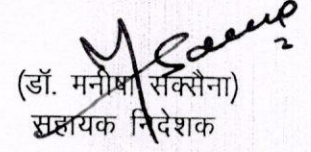 (डॉ. मनीषा सक्सैना)
सहायक निदेशक